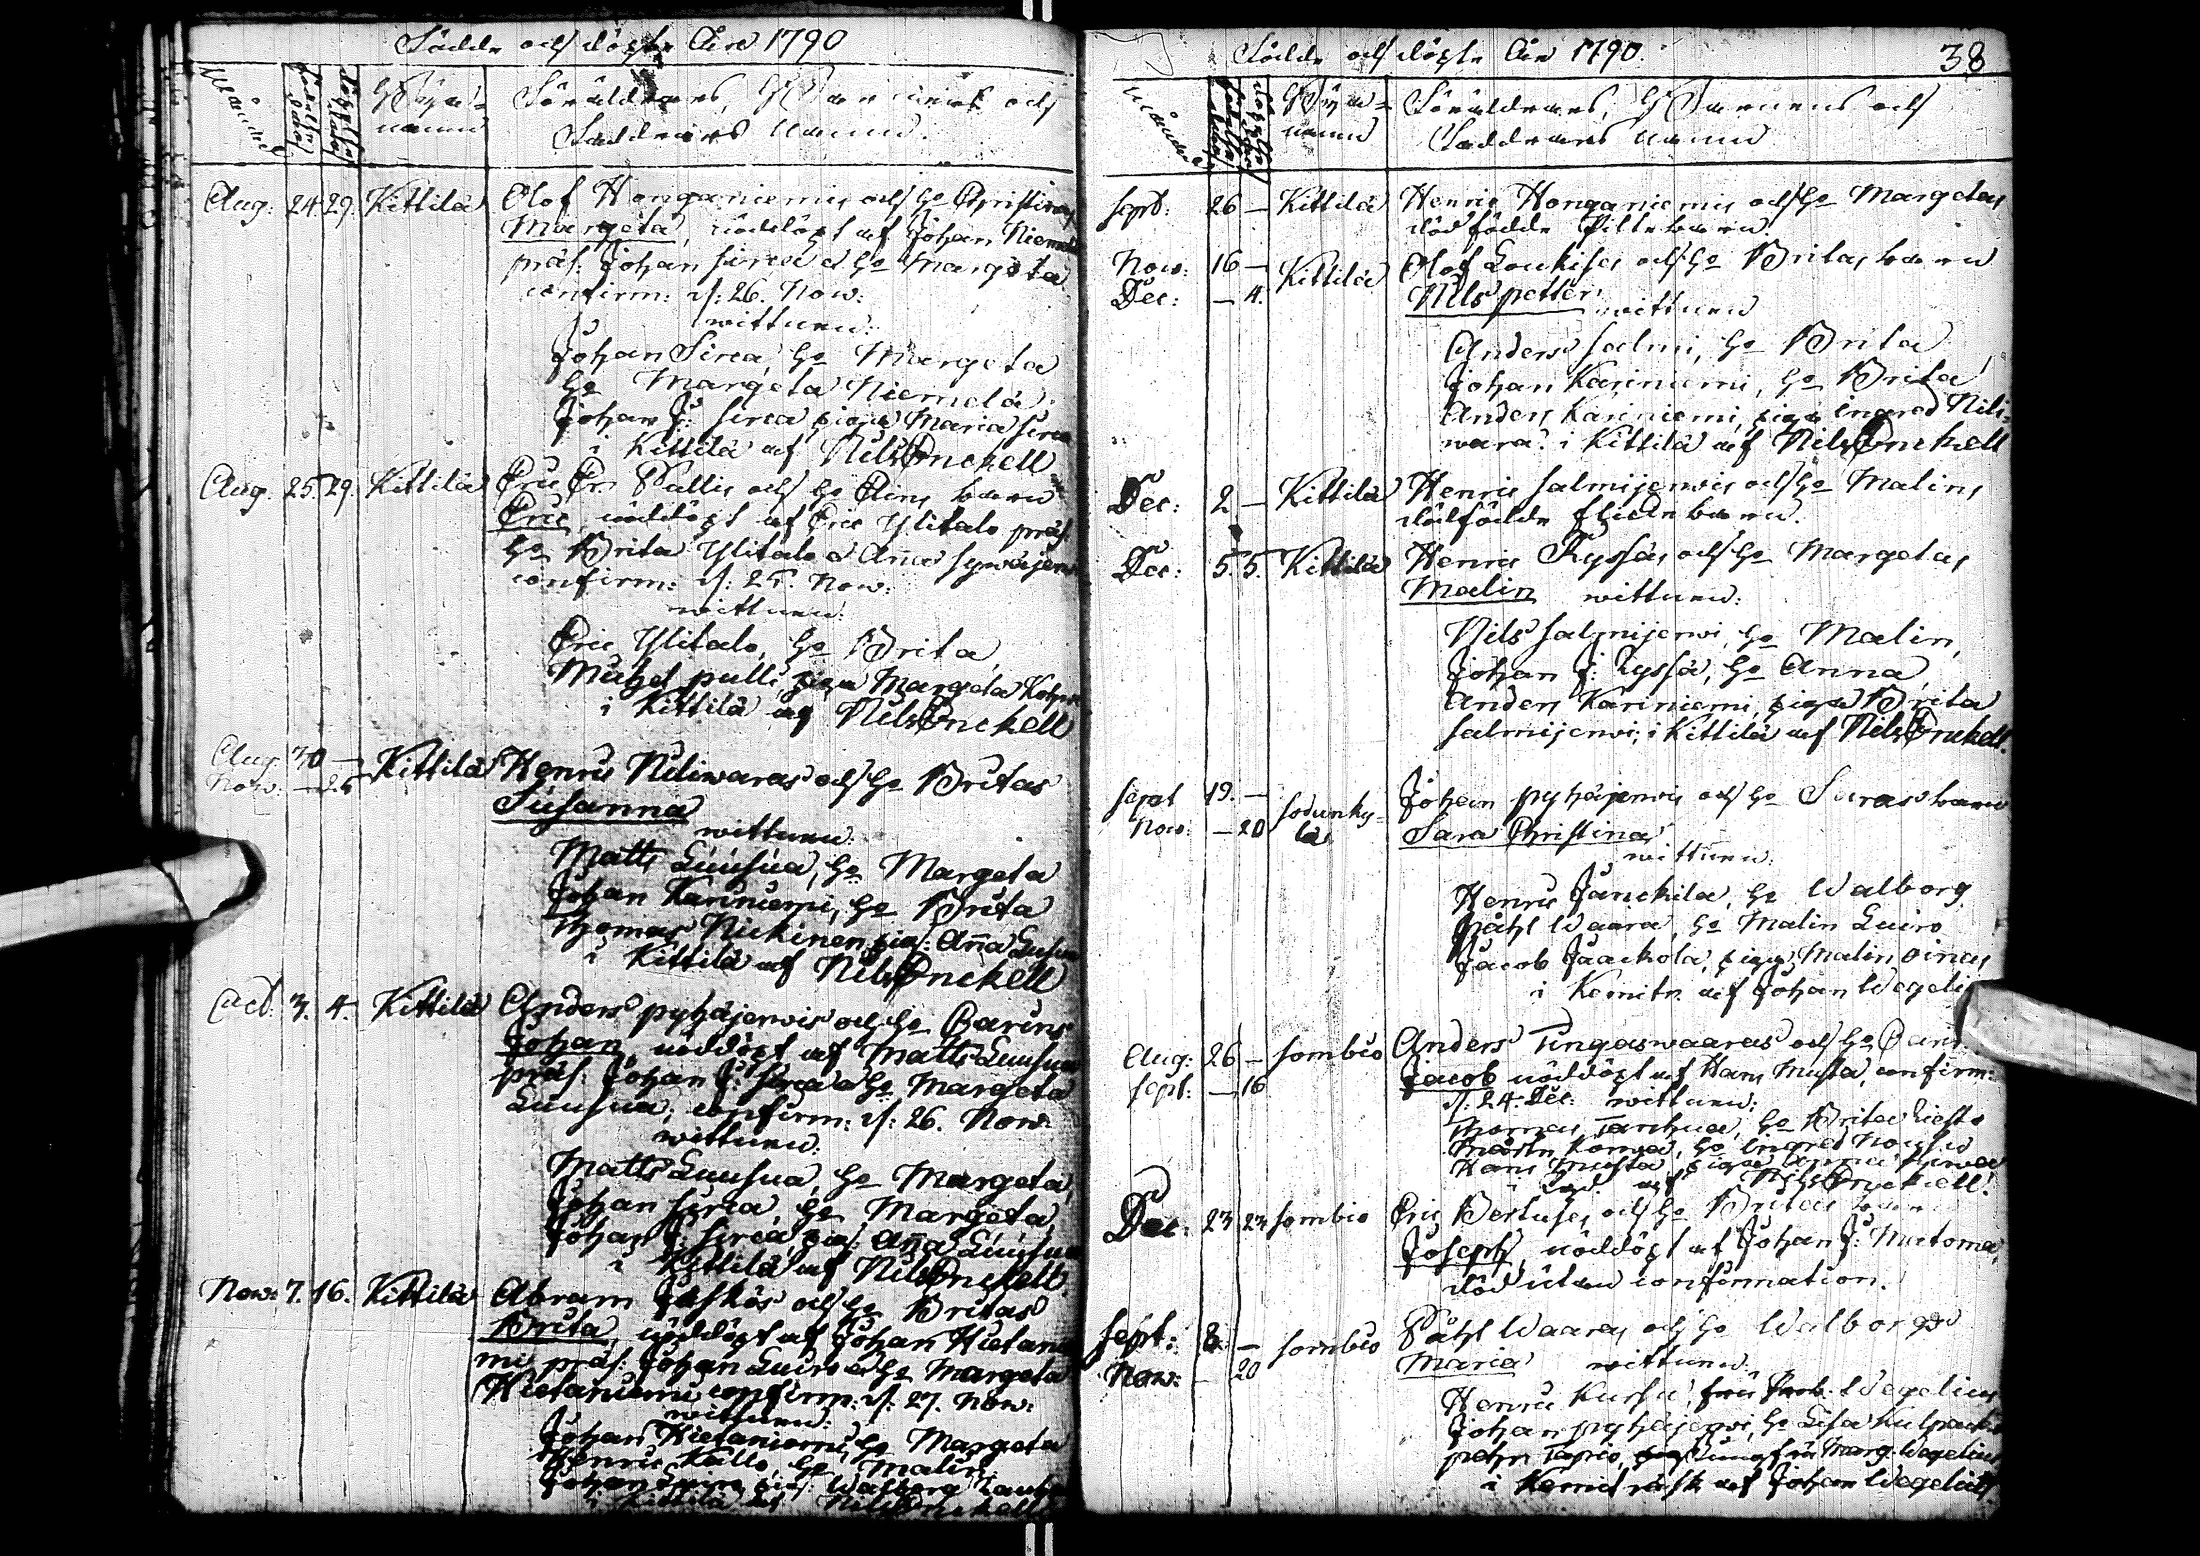 Födde och döpte Åhr 1790
Månader
födelse dagar
döpelse dagar
Bya-
namn
Föräldrars, Barnens och
Faddrars namn.
Aug: 24. 29. Kittilä Olof Honganiemis och h:o Christinas
Margeta, nöddöpt af Johan Niemelä
præs: Johan Sirca a h:o Margeta
confirm: d: 26. Nov:
wittnen:
Johan Sirca, h:o Margeta
h:o Margeta Niemelä
Johan J: Sirca piga Maria Sirca
i Kittilä af Nils Enckell
Aug. 25. 29. Kittilä Eric Er: Pallis och h:o Elins barn
Eric, nöddöpt af Eric Ylitalo præs:
h:o Brita Ylitalo a Anna Sywäjerwi
confirm: d: 25. Nov:
wittnen:
Eric Ylitalo, h:o Brita
Michel palli, piga Margeta
i Kittilä af Nils Enckell
Aug. 30 —
Nov. — 25 Kittilä Henric Niliwaras och h:o Britas
Susanna
wittnen:
Matts Luusua, h:o Margeta
Johan Kariniemi, h:o Brita
Thomas Nickinen pig: Anna Luusua
i Kittilä af Nils Enckell
Oct: 3. 4. Kittilä Anders pyhäjerwis och h:o Carins
Johan, nöddöpt af Matts Luusua
præs: Johan J: Sirca a h:o Margeta
Luusua, confirm: d: 26. Nov:
wittnen:
Matts Luusua, h:o Margeta,
Johan Sirca, h:o Margeta,
Johan J: Sirca, pig: Anna Luusua
i Kittilä af Nils Enckell.
Nov: 7. 16. Kittilä Abram Jeskös och h:o Britas
Brita, nöddöpt af Johan Hietanie-
mi, præs: Johan Luiro a h:o Margeta
Hietaniemi confirm: d: 27. Nov:
wittnen:
Johan Hietaniemi, h:o Margeta
Henric Kallo, h:o Malin
Johan Luiro, pig: Walborg
i Kittilä af Nils Enckell
Födde och döpte Åhr 1790. 38
Månader
födelse dagar
döpelse dagar
Bya-
namn
Föräldrars, Barnens och
Faddrars namn
Sept: 26 — Kittilä Henric Honganiemis och h:o Margetas
dödfödde Piltebarn.
Nov: 16 —
Dec: — 4. Kittilä Olof Loukisas och h:o Britas barn
Nils petter wittnen
Anders Salmi, h:o Brita
Johan Kariniemi, h:o Brita
Anders Kariniemi, piga Ingred Nili-
wara. i Kittilä af Nils Enckell
Dec: 2 — Kittilä Henric Salmijerwis och h:o Malins
dödfödde flickebarn.
Dec: 5. 5. Kittilä Henric Ryssäs och h:o Margetas
Malin wittnen:
Nils Salmijerwi, h:o Malin,
Johan J: Ryssä, h:o Anna,
Anders Kariniemi, piga Brita
Salmijerwi; i Kittilä af Nils Enckell.
Sept 19. —
Nov: — 20 Sodanky-
lä Johan pyhäjerwis och h:o Saras barn
Sara Christina
wittnen:
Henric Janckila, h:o Walborg
påhl Waara, h:o Malin Luiro
Jacob Jaackola, piga Malin Oinas
i Kemitr. af Johan Wegelius
Aug: 26 — Sombio
Sept: — 16 Anders Tungaswaaras och h:o
Jacob nöddöpt af Hans Musta, confirm:
d: 24. Dec: wittnen:
Thomas Tarchua, h:o Brita
Mårtn Konga, h:o Ingred
Hans Musta, piga Anna
i af Nils Enckell.
Dec: 23 23 Sombio Eric Bertuses och h:o Britas barn
Joseph, nöddöpt af Johan J: Martoma,
död utan confirmation.
Sept: 8. —
Nov: — 20 Sombio Påhl Waaras och h:o Walborgs
Maria wittnen
Henric Kursu, fru Wegelius
Johan pyhäjerwi, h:o Lisa
pehr Tapio, Jungfru Marg: Wegelius
i Kemiträsk af Johan Wegelius